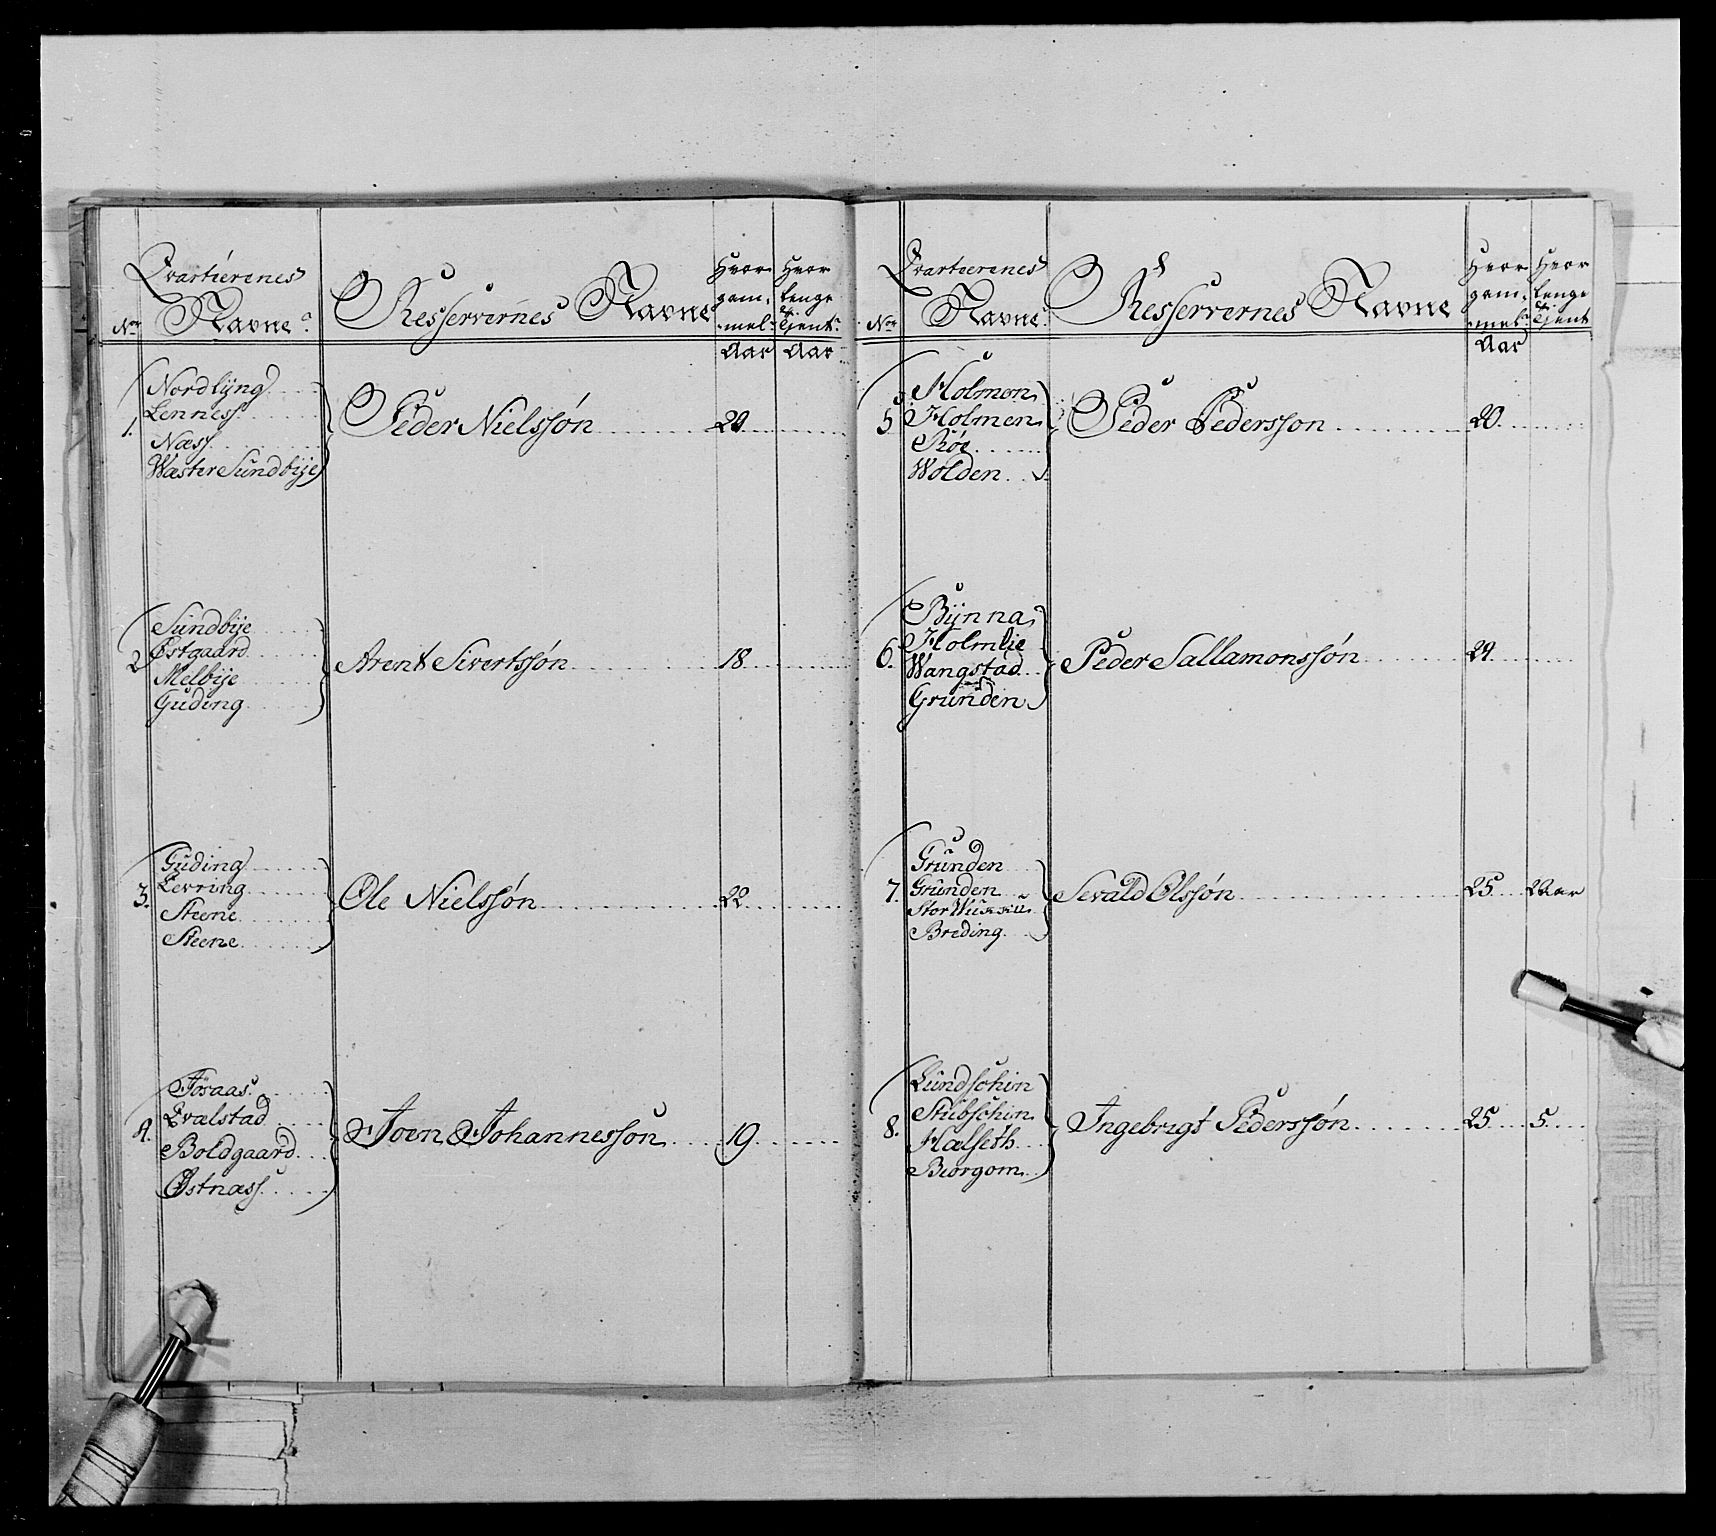 Nor
Qvartierenes
Navne
Resservernes Navne
Hvor
gam-
mel
Aar
Hvor
lenge
Tjent
Aar
1.
Nordlÿng
Lenness
Næss
Wæster Sundbÿe
Peder Nielssøn
2.
Sundbÿe
Østgaard
Melbÿe
Guding
Arent Sivertssøn
18
3.
Guding
Levring
Steene
Steene
Ole Nielssøn
22
4.
Tøraas
Qvælstad
Boldgaard
Østnæss
Joen Johannesson
19
Nor
Qvartierenes
Navne
Resservernes Navne
Hvor
gam-
mel
Aar
Hvor
lenge
Tjent
5
Holmen
Holmen
Røe
Wolden
Peder Pedersson
20
6.
Bÿnna
Holmlie
Wangstad
Grunden
Peder Sallamonssøn
24
7.
Grunden
Grunden
Breding
Sevald Olssøn
25
2 Aar
8.
Lundschin
Stubschin
Hælseth
Biorgom
Ingebrigt Pederssøn
25
5